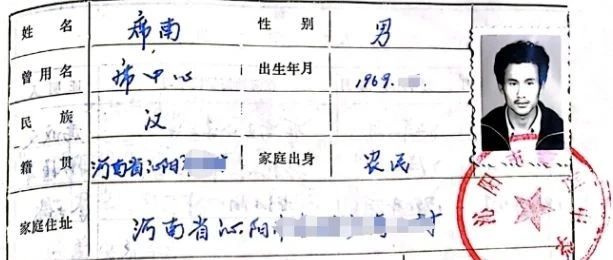 姓 名 席南 性 别 男
曾用名 席中心 出生年月 1969.
民 族 汉
籍 贯 河南省沁阳市 村 家庭出身 农民
家庭住址 河南省沁阳市 村
沁阳市